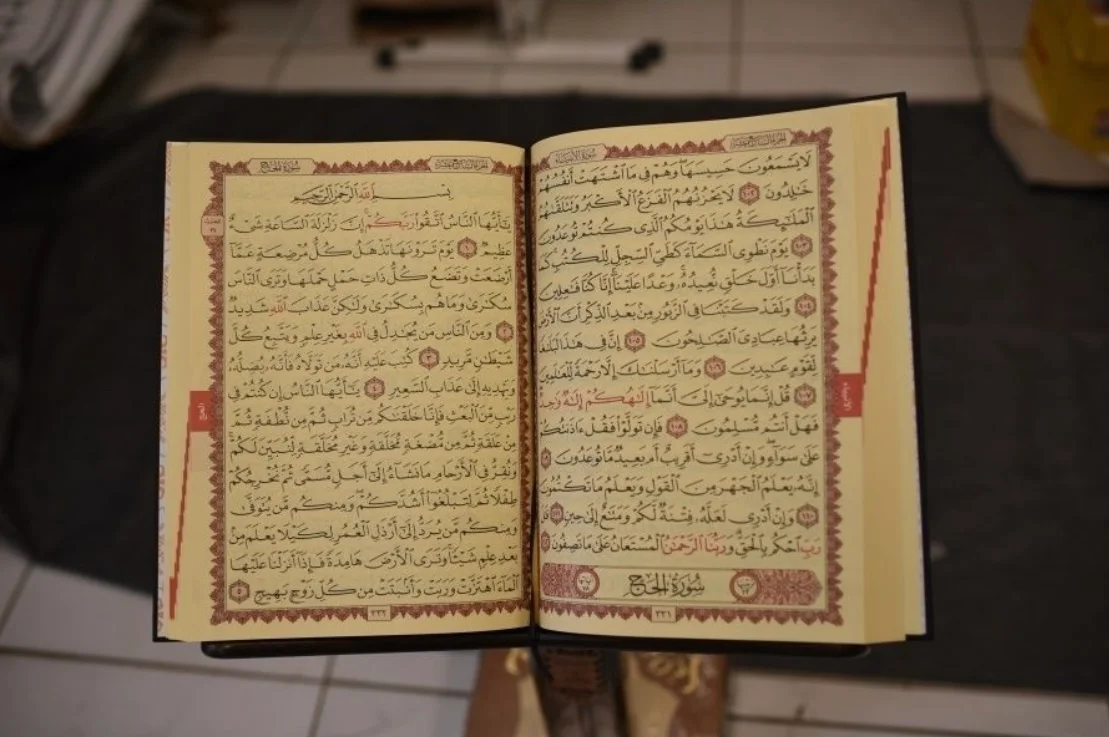 الجزء السابع عشر سورة الأنبياء
لَا يَسْمَعُونَ حَسِيسَهَا وَهُمْ فِي مَا ٱشْتَهَتْ أَنفُسُهُمْ
خَٰلِدُونَ ١٠٢ لَا يَحْزُنُهُمُ ٱلْفَزَعُ ٱلْأَكْبَرُ وَتَتَلَقَّىٰهُمُ
ٱلْمَلَٰٓئِكَةُ هَٰذَا يَوْمُكُمُ ٱلَّذِى كُنتُمْ تُوعَدُونَ
١٠٣ يَوْمَ نَطْوِى ٱلسَّمَآءَ كَطَىِّ ٱلسِّجِلِّ لِلْكُتُبِ كَمَا
بَدَأْنَآ أَوَّلَ خَلْقٍ نُّعِيدُهُۥ وَعْدًا عَلَيْنَآ إِنَّا كُنَّا فَٰعِلِينَ
١٠٤ وَلَقَدْ كَتَبْنَا فِى ٱلزَّبُورِ مِنۢ بَعْدِ ٱلذِّكْرِ أَنَّ ٱلْأَرْضَ
يَرِثُهَا عِبَادِىَ ٱلصَّٰلِحُونَ ١٠٥ إِنَّ فِى هَٰذَا لَبَلَٰغًا
لِّقَوْمٍ عَٰبِدِينَ ١٠٦ وَمَآ أَرْسَلْنَٰكَ إِلَّا رَحْمَةً لِّلْعَٰلَمِينَ
١٠٧ قُلْ إِنَّمَا يُوحَىٰٓ إِلَىَّ أَنَّمَآ إِلَٰهُكُمْ إِلَٰهٌ وَٰحِدٌ
فَهَلْ أَنتُم مُّسْلِمُونَ ١٠٨ فَإِن تَوَلَّوْا۟ فَقُلْ ءَاذَنتُكُمْ
عَلَىٰ سَوَآءٍ وَإِنْ أَدْرِىٓ أَقَرِيبٌ أَم بَعِيدٌ مَّا تُوعَدُونَ ١٠٩
إِنَّهُۥ يَعْلَمُ ٱلْجَهْرَ مِنَ ٱلْقَوْلِ وَيَعْلَمُ مَا تَكْتُمُونَ
١١٠ وَإِنْ أَدْرِى لَعَلَّهُۥ فِتْنَةٌ لَّكُمْ وَمَتَٰعٌ إِلَىٰ حِينٍ ١١١ قَٰلَ
رَبِّ ٱحْكُم بِٱلْحَقِّ وَرَبُّنَا ٱلرَّحْمَٰنُ ٱلْمُسْتَعَانُ عَلَىٰ مَا تَصِفُونَ ١١٢
سُورَةُ الحَجّ
٣٣١
الجزء السابع عشر سورة الحج
بِسْمِ ٱللَّهِ ٱلرَّحْمَٰنِ ٱلرَّحِيمِ
يَٰٓأَيُّهَا ٱلنَّاسُ ٱتَّقُوا۟ رَبَّكُمْ إِنَّ زَلْزَلَةَ ٱلسَّاعَةِ شَىْءٌ
عَظِيمٌ ١ يَوْمَ تَرَوْنَهَا تَذْهَلُ كُلُّ مُرْضِعَةٍ عَمَّآ
أَرْضَعَتْ وَتَضَعُ كُلُّ ذَاتِ حَمْلٍ حَمْلَهَا وَتَرَى ٱلنَّاسَ
سُكَٰرَىٰ وَمَا هُم بِسُكَٰرَىٰ وَلَٰكِنَّ عَذَابَ ٱللَّهِ شَدِيدٌ
٢ وَمِنَ ٱلنَّاسِ مَن يُجَٰدِلُ فِى ٱللَّهِ بِغَيْرِ عِلْمٍ وَيَتَّبِعُ كُلَّ
شَيْطَٰنٍ مَّرِيدٍ ٣ كُتِبَ عَلَيْهِ أَنَّهُۥ مَن تَوَلَّاهُ فَأَنَّهُۥ يُضِلُّهُۥ
وَيَهْدِيهِ إِلَىٰ عَذَابِ ٱلسَّعِيرِ ٤ يَٰٓأَيُّهَا ٱلنَّاسُ إِن كُنتُمْ فِى
رَيْبٍ مِّنَ ٱلْبَعْثِ فَإِنَّا خَلَقْنَٰكُم مِّن تُرَابٍ ثُمَّ مِن نُّطْفَةٍ ثُمَّ
مِنْ عَلَقَةٍ ثُمَّ مِن مُّضْغَةٍ مُّخَلَّقَةٍ وَغَيْرِ مُخَلَّقَةٍ لِّنُبَيِّنَ لَكُمْ
وَنُقِرُّ فِى ٱلْأَرْحَامِ مَا نَشَآءُ إِلَىٰٓ أَجَلٍ مُّسَمًّى ثُمَّ نُخْرِجُكُمْ
طِفْلًا ثُمَّ لِتَبْلُغُوٓا۟ أَشُدَّكُمْ وَمِنكُم مَّن يُتَوَفَّىٰ
وَمِنكُم مَّن يُرَدُّ إِلَىٰٓ أَرْذَلِ ٱلْعُمُرِ لِكَيْلَا يَعْلَمَ مِنۢ
بَعْدِ عِلْمٍ شَيْـًٔا وَتَرَى ٱلْأَرْضَ هَامِدَةً فَإِذَآ أَنزَلْنَا عَلَيْهَا
ٱلْمَآءَ ٱهْتَزَّتْ وَرَبَتْ وَأَنۢبَتَتْ مِن كُلِّ زَوْجٍۭ بَهِيجٍ ٥
الحج
٣٣٢